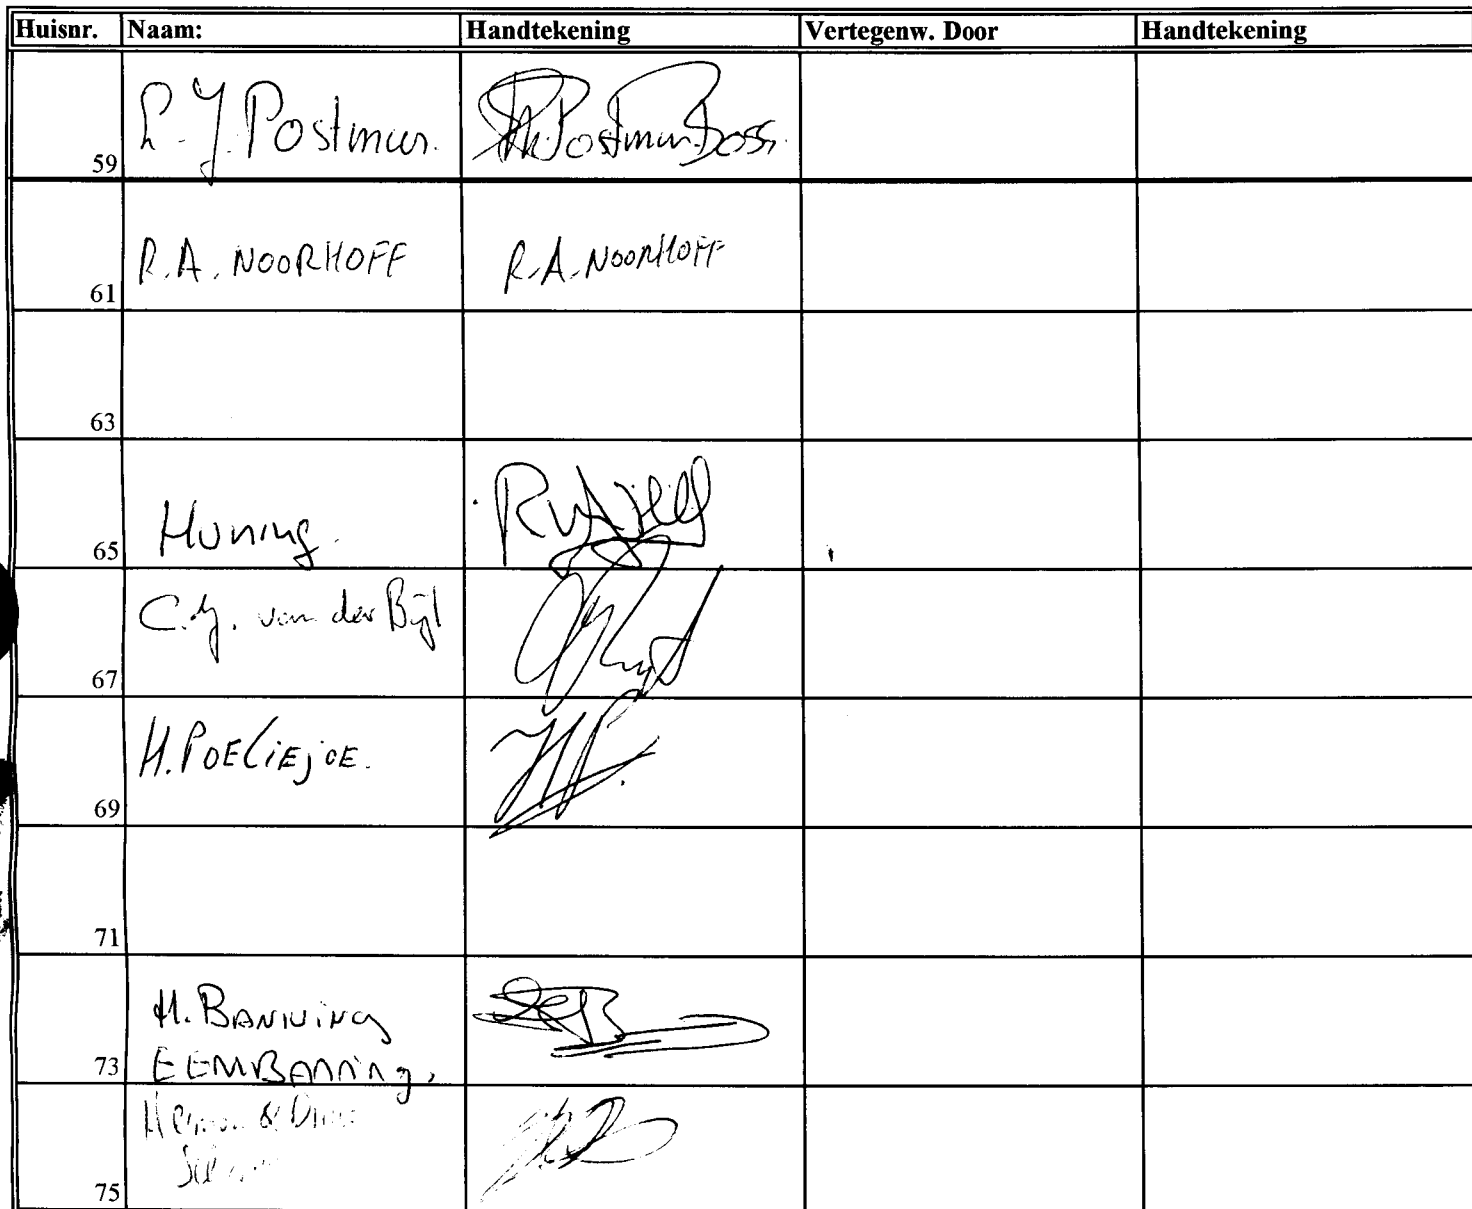 Huisnr. Naam: Handtekening Vertegenw. Door Handtekening
59 L. J. Postmus. Postmus-Boss.
61 R.A. NOORHOFF R.A. NOORHOFF
63
65 Huning.
67 C.J. van der Bijl
69 H. POELIEJOE.
71
H. BANNING
73 EEMBANNING.
&
75